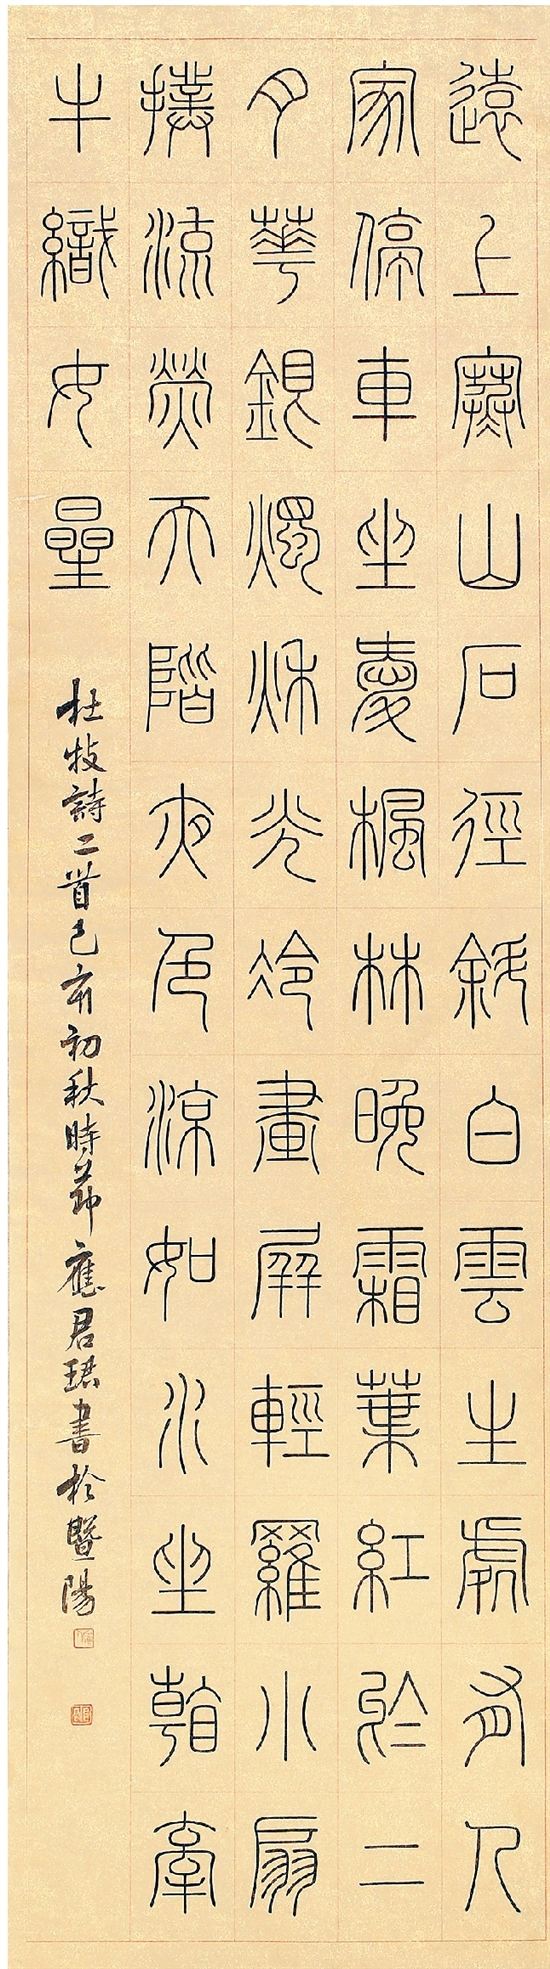 遠上寒山石徑斜白雲生處有人
家停車坐愛楓林晚霜葉紅於二
月華銀燭秌光冷畫屏輕羅小扇
撲流熒天階夜色涼如水坐看牽
牛織女星
杜牧詩二首己亥初秋時節應君珺書於暨陽